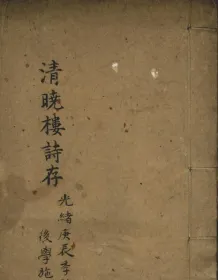 清曉樓詩存
光緒庚辰季
後學施